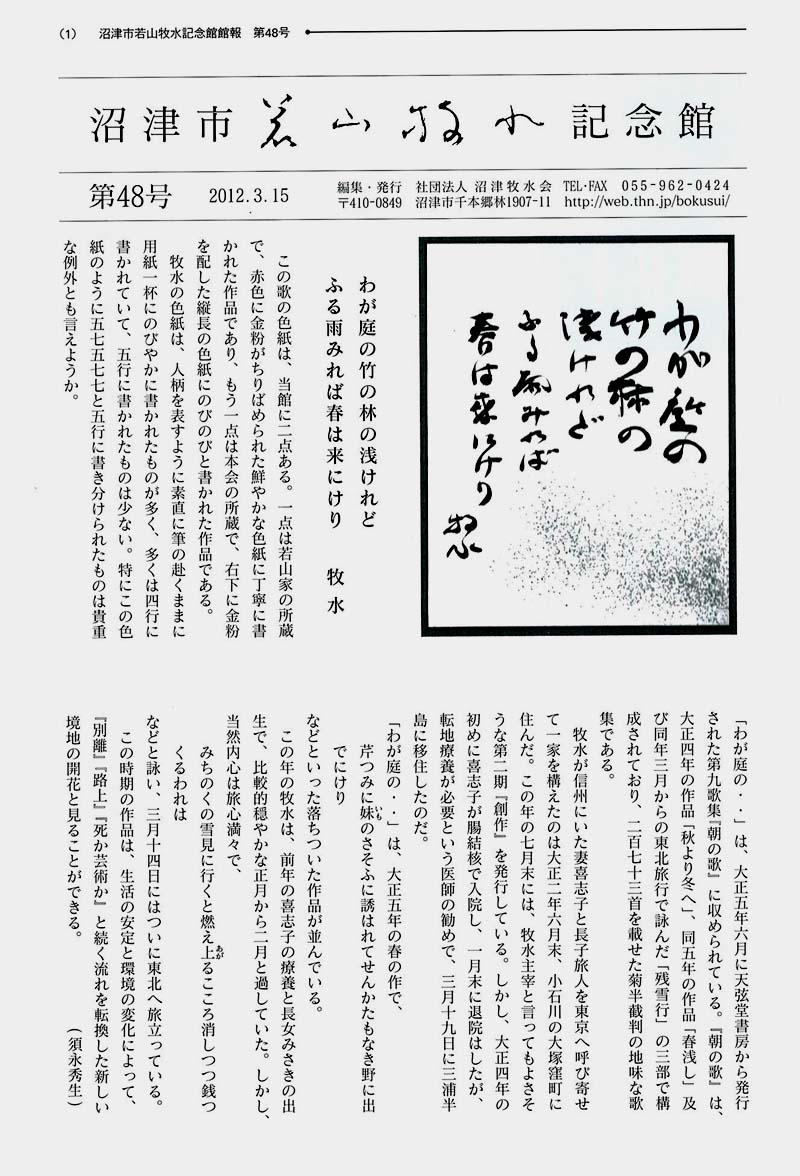 (1)　沼津市若山牧水記念館館報　第48号
沼津市若山牧水記念館
第48号　2012.3.15
編集・発行　社団法人 沼津牧水会　TEL・FAX　055-962-0424
〒410-0849　沼津市千本郷林1907-11　http://web.thn.jp/bokusui/
わが庭の
竹の林の
浅けれど
ふる雨みれば
春は来にけり
牧水
わが庭の竹の林の浅けれど
ふる雨みれば春は来にけり　牧水
この歌の色紙は、当館に二点ある。一点は若山家の所蔵
で、赤色に金粉がちりばめられた鮮やかな色紙に丁寧に書
かれた作品であり、もう一点は本会の所蔵で、右下に金粉
を配した縦長の色紙にのびのびと書かれた作品である。
牧水の色紙は、人柄を表すように素直に筆の赴くままに
用紙一杯にのびやかに書かれたものが多く、多くは四行に
書かれていて、五行に書かれたものは少ない。特にこの色
紙のように五七五七七と五行に書き分けられたものは貴重
な例外とも言えようか。
「わが庭の・・」は、大正五年六月に天弦堂書房から発行
された第九歌集『朝の歌』に収められている。『朝の歌』は、
大正四年の作品「秋より冬へ」、同五年の作品「春浅し」及
び同年三月からの東北旅行で詠んだ「残雪行」の三部で構
成されており、二百七十三首を載せた菊半裁判の地味な歌
集である。
牧水が信州にいた妻喜志子と長子旅人を東京へ呼び寄せ
て一家を構えたのは大正二年六月末、小石川の大塚窪町に
住んだ。この年の七月末には、牧水主宰と言ってもよさそ
うな第二期『創作』を発行している。しかし、大正四年の
初めに喜志子が腸結核で入院し、一月末に退院はしたが、
転地療養が必要という医師の勧めで、三月十九日に三浦半
島に移住したのだ。
「わが庭の・・」は、大正五年の春の作で、
芹つみに妹のさそふに誘はれてせんかたもなき野に出
でにけり
などといった落ちついた作品が並んでいる。
この年の牧水は、前年の喜志子の療養と長女みさきの出
生で、比較的穏やかな正月から二月と過していた。しかし、
当然内心は旅心満々で、
みちのくの雪見に行くと燃え上るこころ消しつつ銭つ
くるわれは
などと詠い、三月十四日にはついに東北へ旅立っている。
この時期の作品は、生活の安定と環境の変化によって、
『別離』『路上』『死か芸術か』と続く流れを転換した新しい
境地の開花と見ることができる。
（須永秀生）